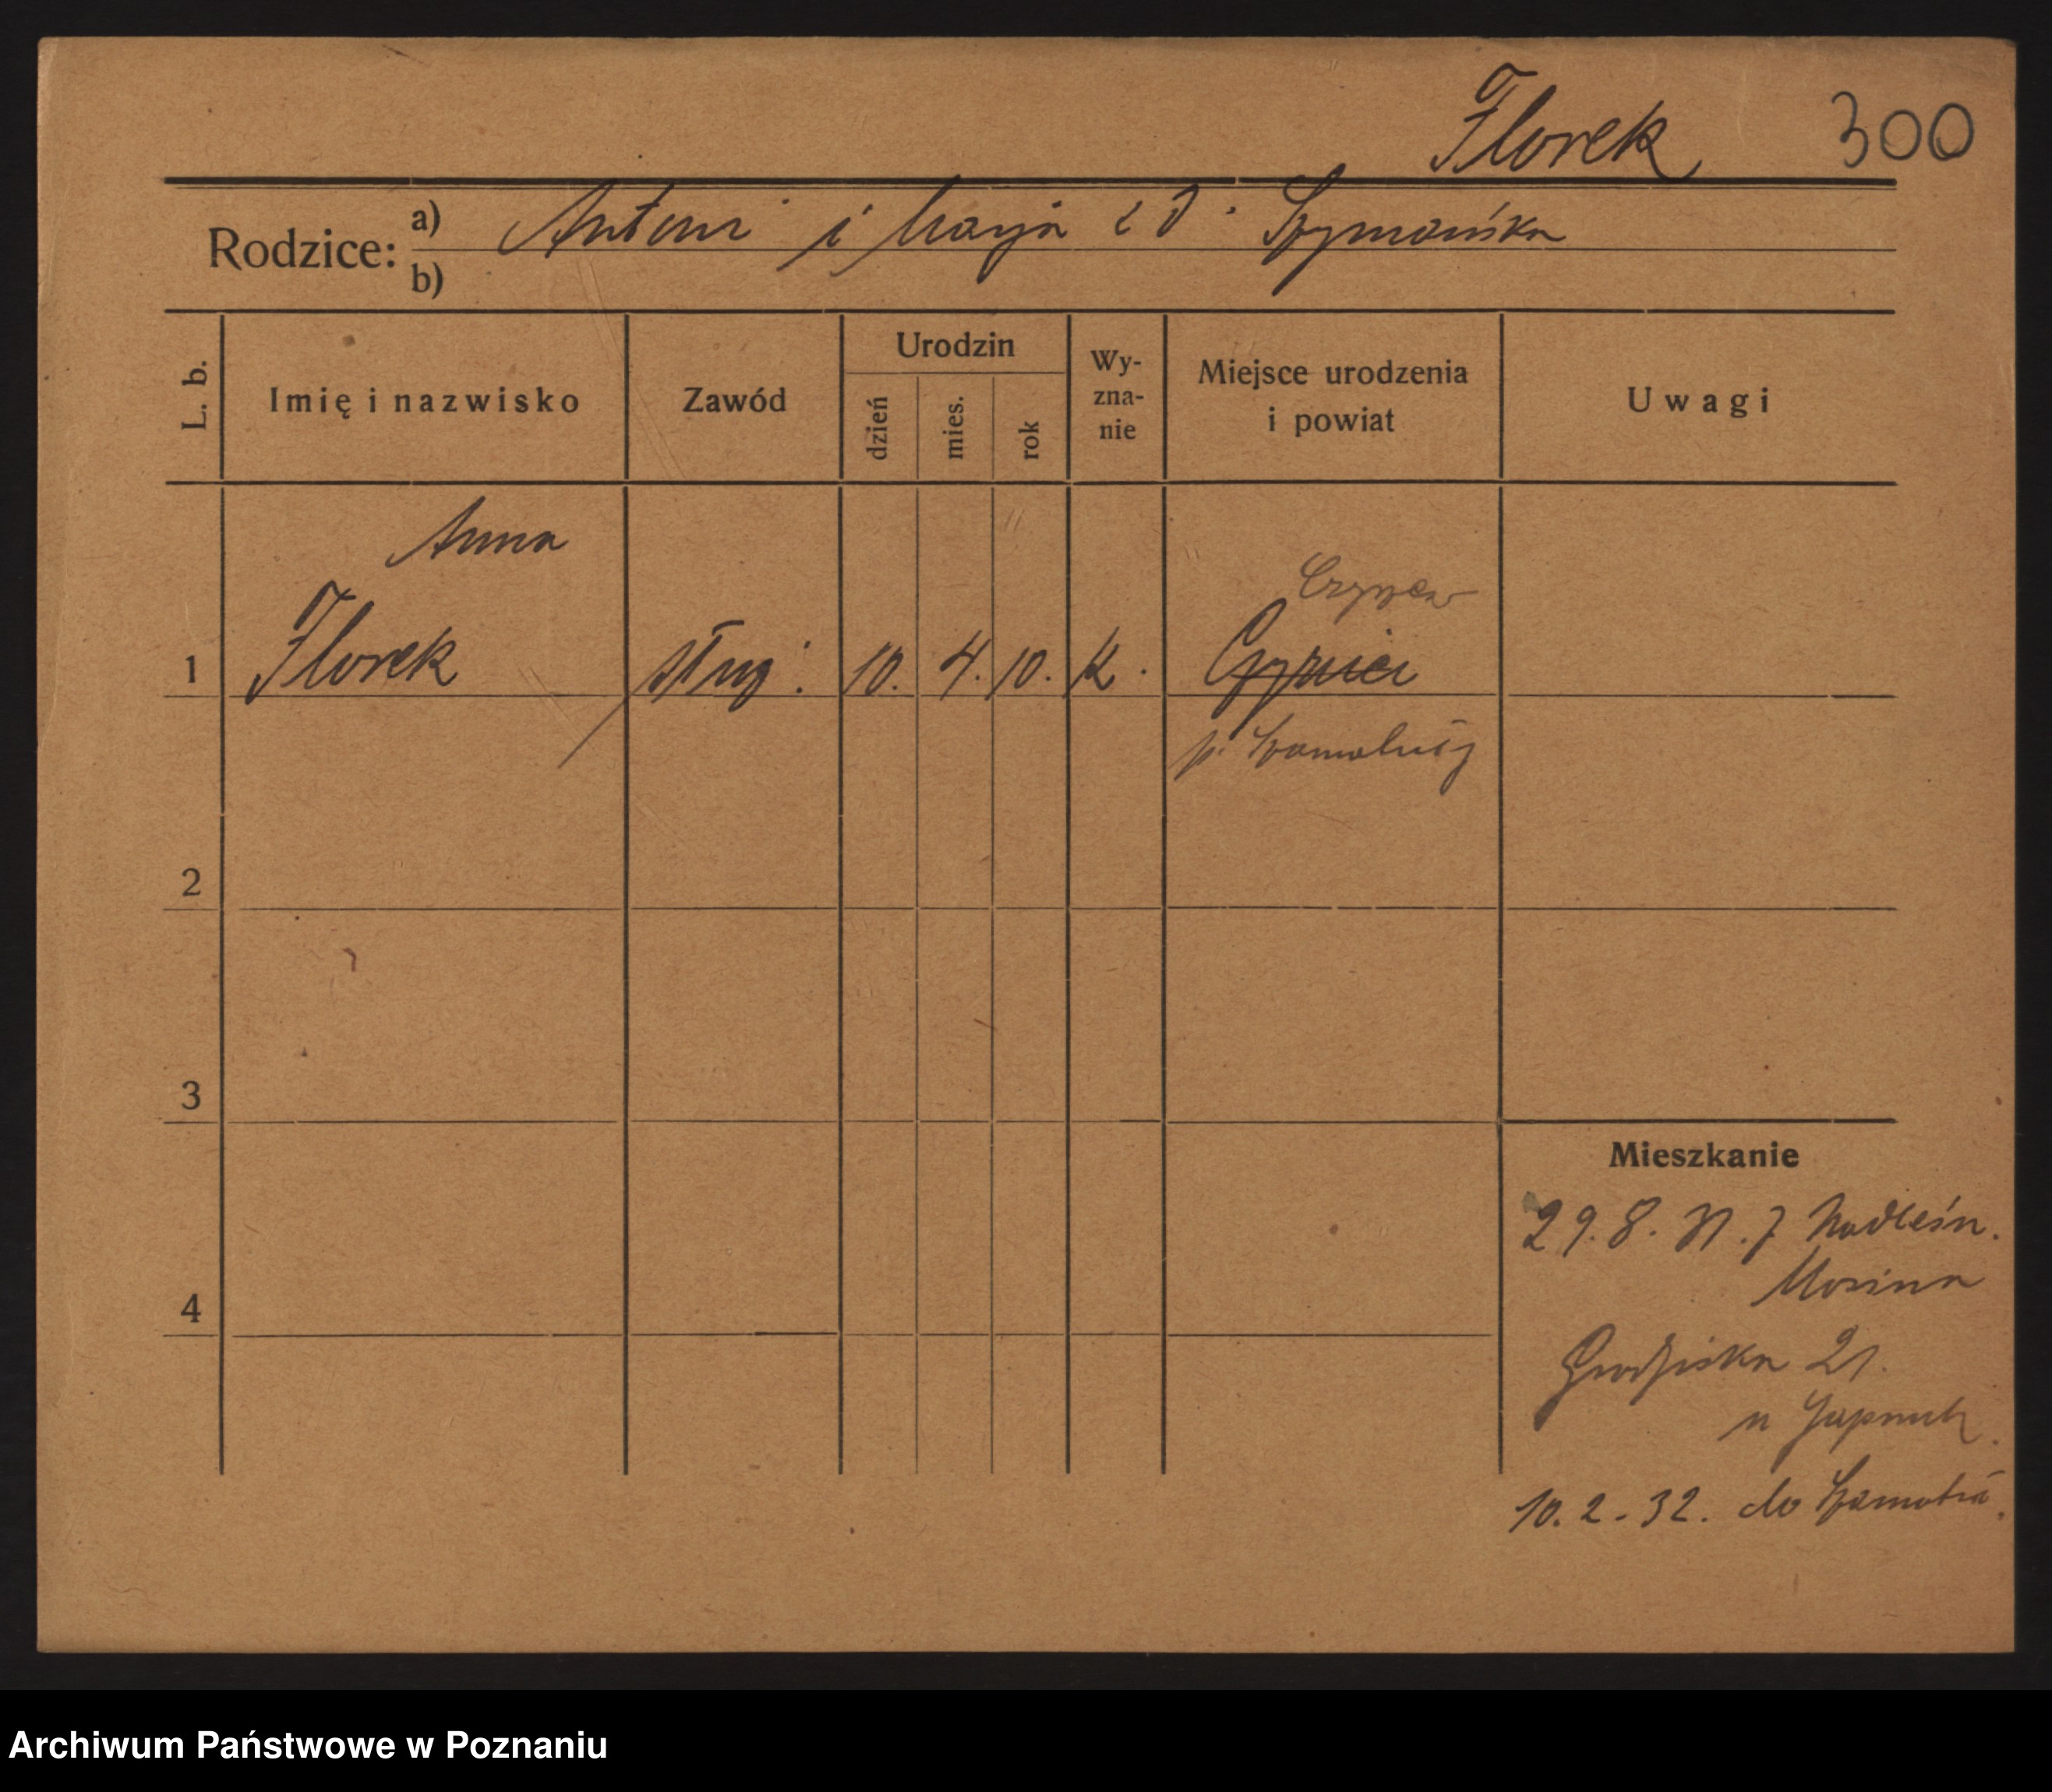 Florek 300
Rodzice: a) Antoni i Marja z d. Szymańska
b)
L. b. Imię i nazwisko Zawód Urodzin dzień mies. rok Wy-zna-nie Miejsce urodzenia i powiat Uwagi
Anna
1 Florek służ. 10. 4. 10. k.
p. Szamotuły
2
3
4
Mieszkanie
29.8.31. z Nadleśn.
Mosina
Grodziska 21.
u
10.2-32. do Szamotuł
Archiwum Państwowe w Poznaniu